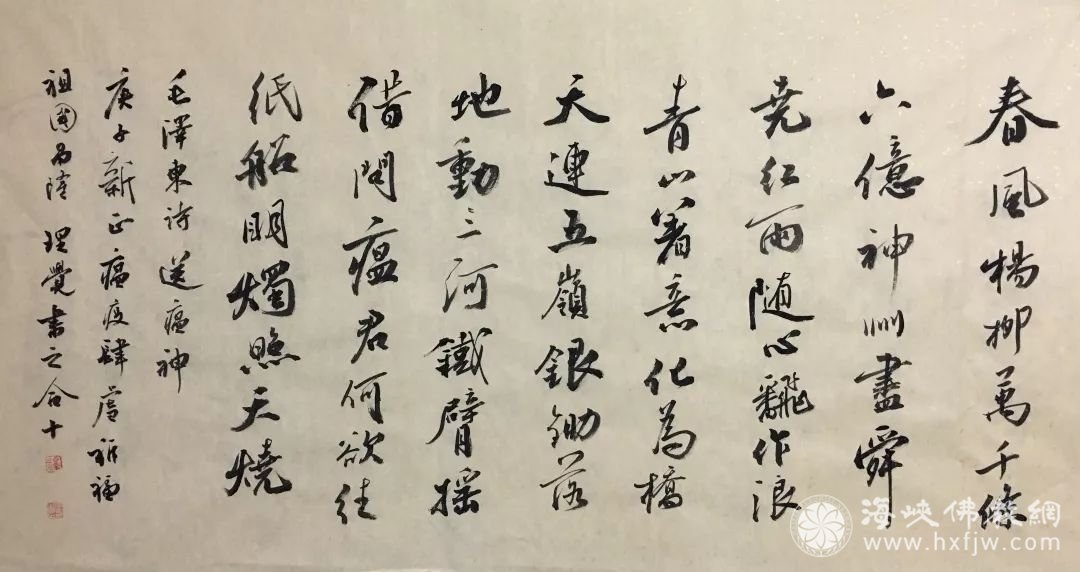 春風楊柳萬千條
六億神州盡舜
堯紅雨随心飜作浪
青山着意化為橋
天連五嶺銀鋤落
地動三河鐵臂摇
借問瘟君何欲往
纸船明燭照天燒
毛澤東诗送瘟神
庚子新正瘟疫肆虐祈福
祖國昌隆 理覺書之合十
海峡佛教網
www.hxfjw.com